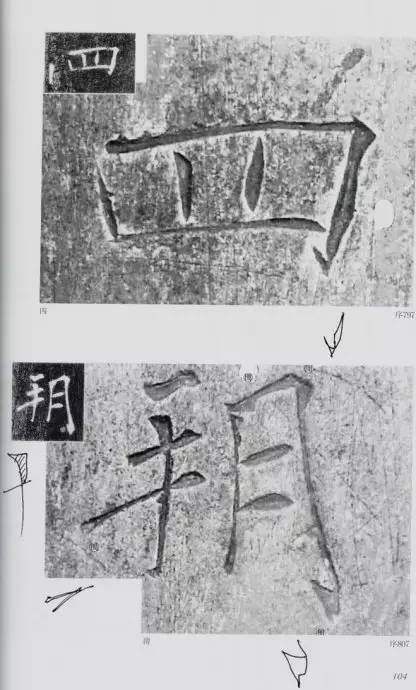 四
四
四 序797
朔
朔
朔 序807
104